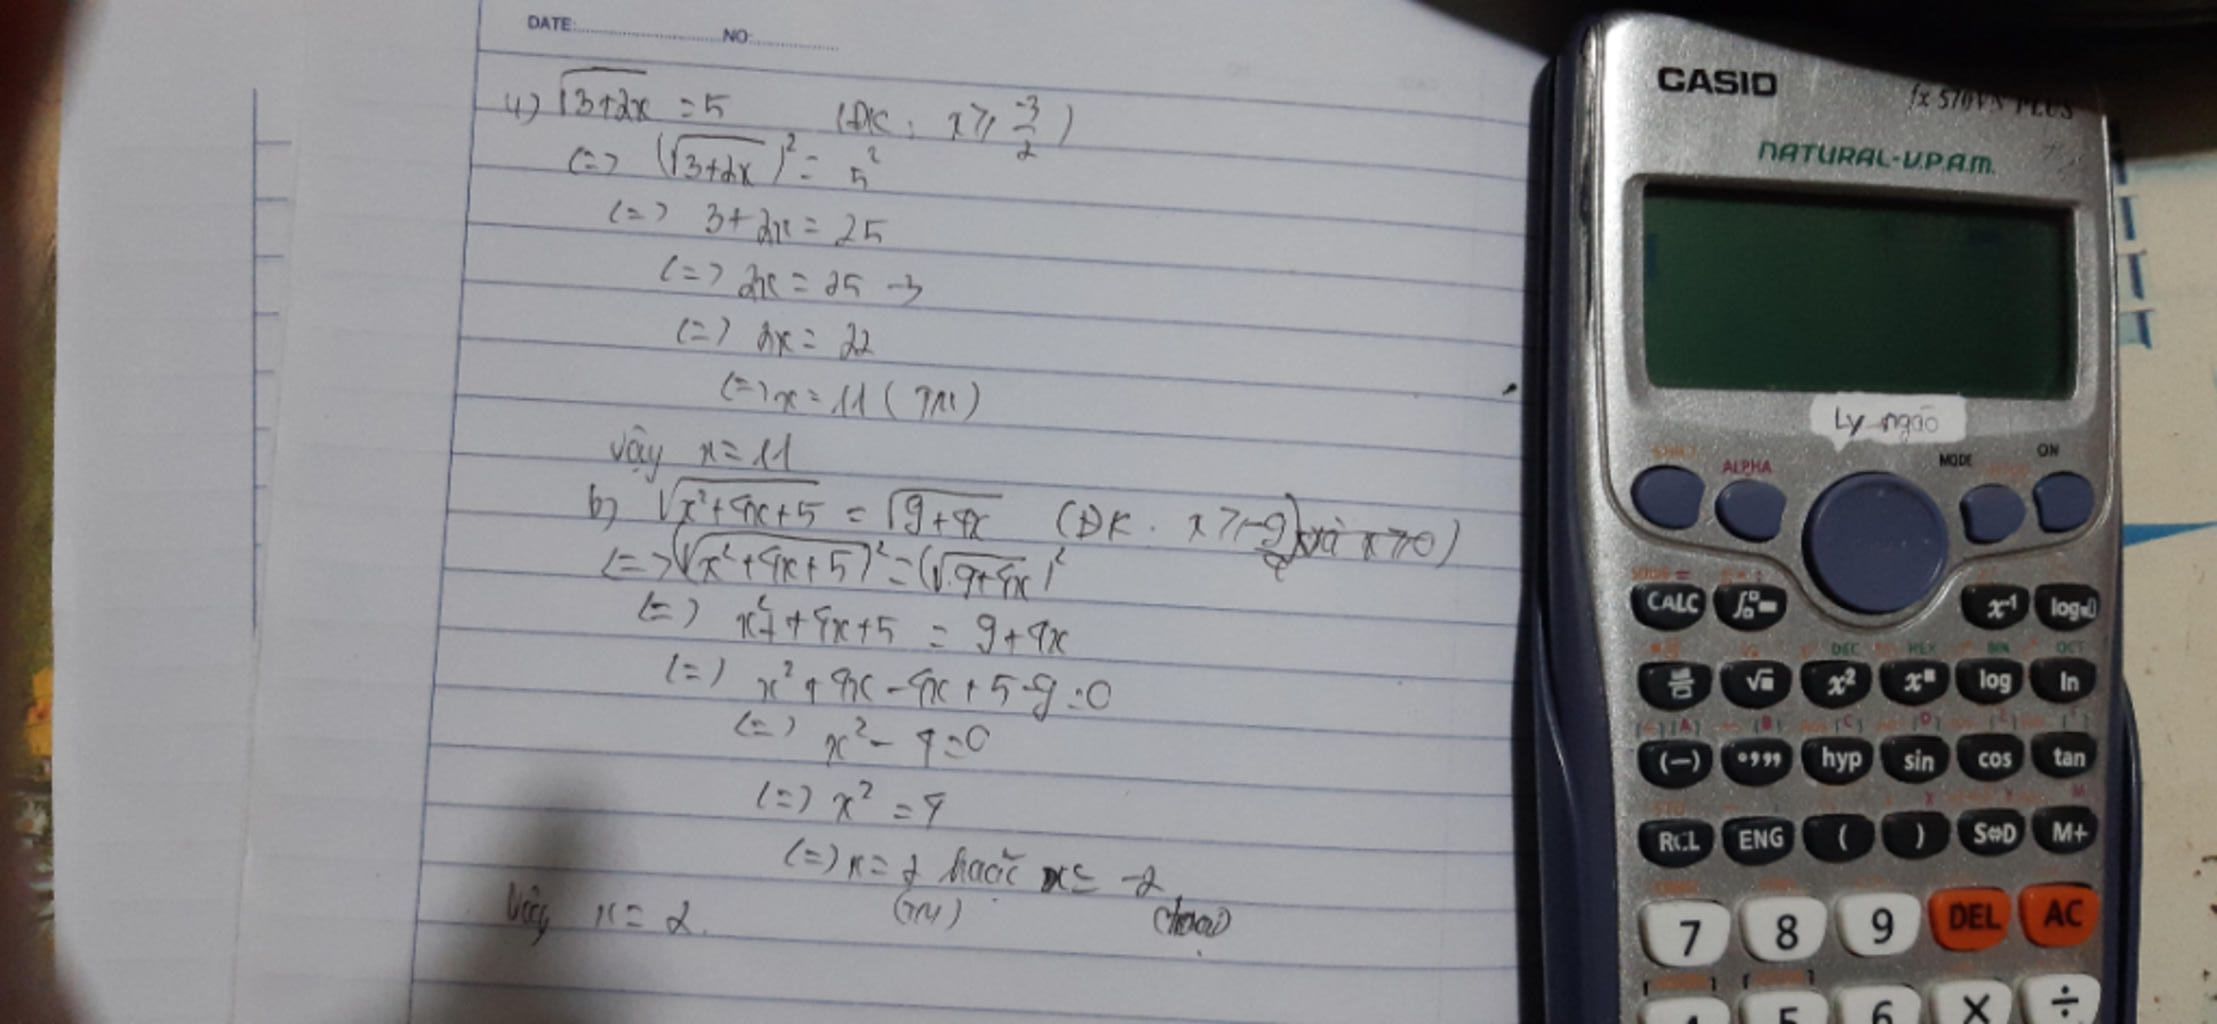 DATE: NO:
4) √3+2x = 5 (ĐK: x ≥ -3/2)
<=> (√3+2x)² = 5²
<=> 3+2x = 25
<=> 2x = 25 -3
<=> 2x = 22
<=> x = 11 (TM)
Vậy x = 11
b) √x²+4x+5 = √9+4x (ĐK: x ≥ -9/4 và x ≥ 0)
<=> (√x²+4x+5)² = (√9+4x)²
<=> x²+4x+5 = 9+4x
<=> x²+4x-4x+5-9=0
<=> x²-4=0
<=> x² = 4
<=> x = 2 hoặc x = -2
(TM) (loại)
Vậy x = 2.
CASIO
fx-570VN PLUS
NATURAL-V.P.A.M.
Ly ngáo
SHIFT ALPHA MODE ON
CALC x⁻¹ log
DEC HEX BIN OCT
√ x² x log ln
(A) (B) (C) (D)
(-) °,,, hyp sin cos tan
RCL ENG ( ) S⇔D M+
7 8 9 DEL AC
4 5 6 × ÷